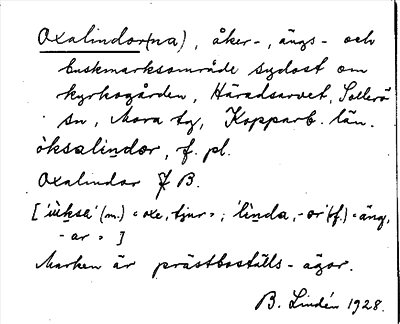 Oxalindor(na), åker-, ängs- och
buskmarksområde sydost om
kyrkogården, Häradsarvet, Sollerö
sn, Mora tg, Kopparb. län.
òksalindor, f. pl.
Oxalindor f B.
['ùksa' (m.) "oxe, tjur"; 'linda, -or' (f.) "äng,
-ar"]
Marken är prästboställs-ägor.
B. Lindén 1928.